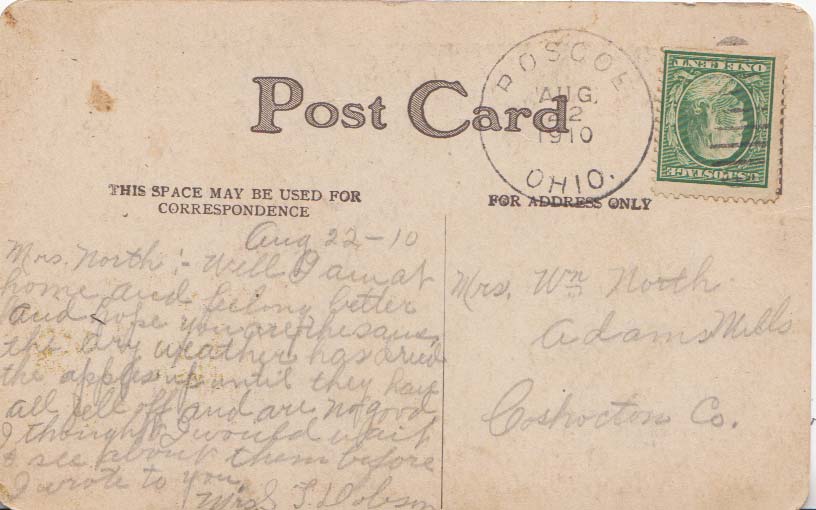 Post Card
ROSCOE
AUG.
22
1910
OHIO.
ONE CENT
U.S. POSTAGE
THIS SPACE MAY BE USED FOR
CORRESPONDENCE
FOR ADDRESS ONLY
Aug 22-10
Mrs. North:- Well I am at
home and feeling better
and hope you are the same,
the dry weather has dried
the apples up until they have
all fell off and are no good
I thought I would wait
& see about them before
I wrote to you.
Mrs. T. Dobson
Mrs. Wm North
Adams Mills
Coshocton Co.